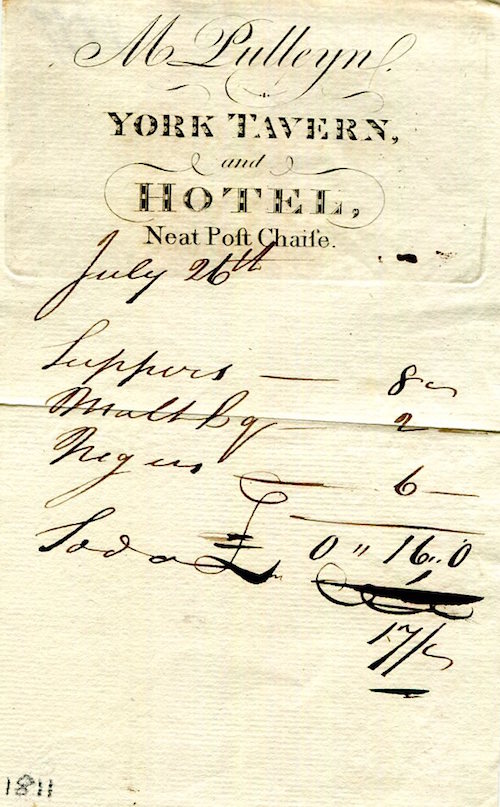 M Pulleyn.
YORK TAVERN,
and
HOTEL,
Neat Poſt Chaiſe.
July 26th
Suppers — 8
Malt Lq — 2
Negus — 6 —
£ 0 " 16 .. 0
Soda 1
17/
1811